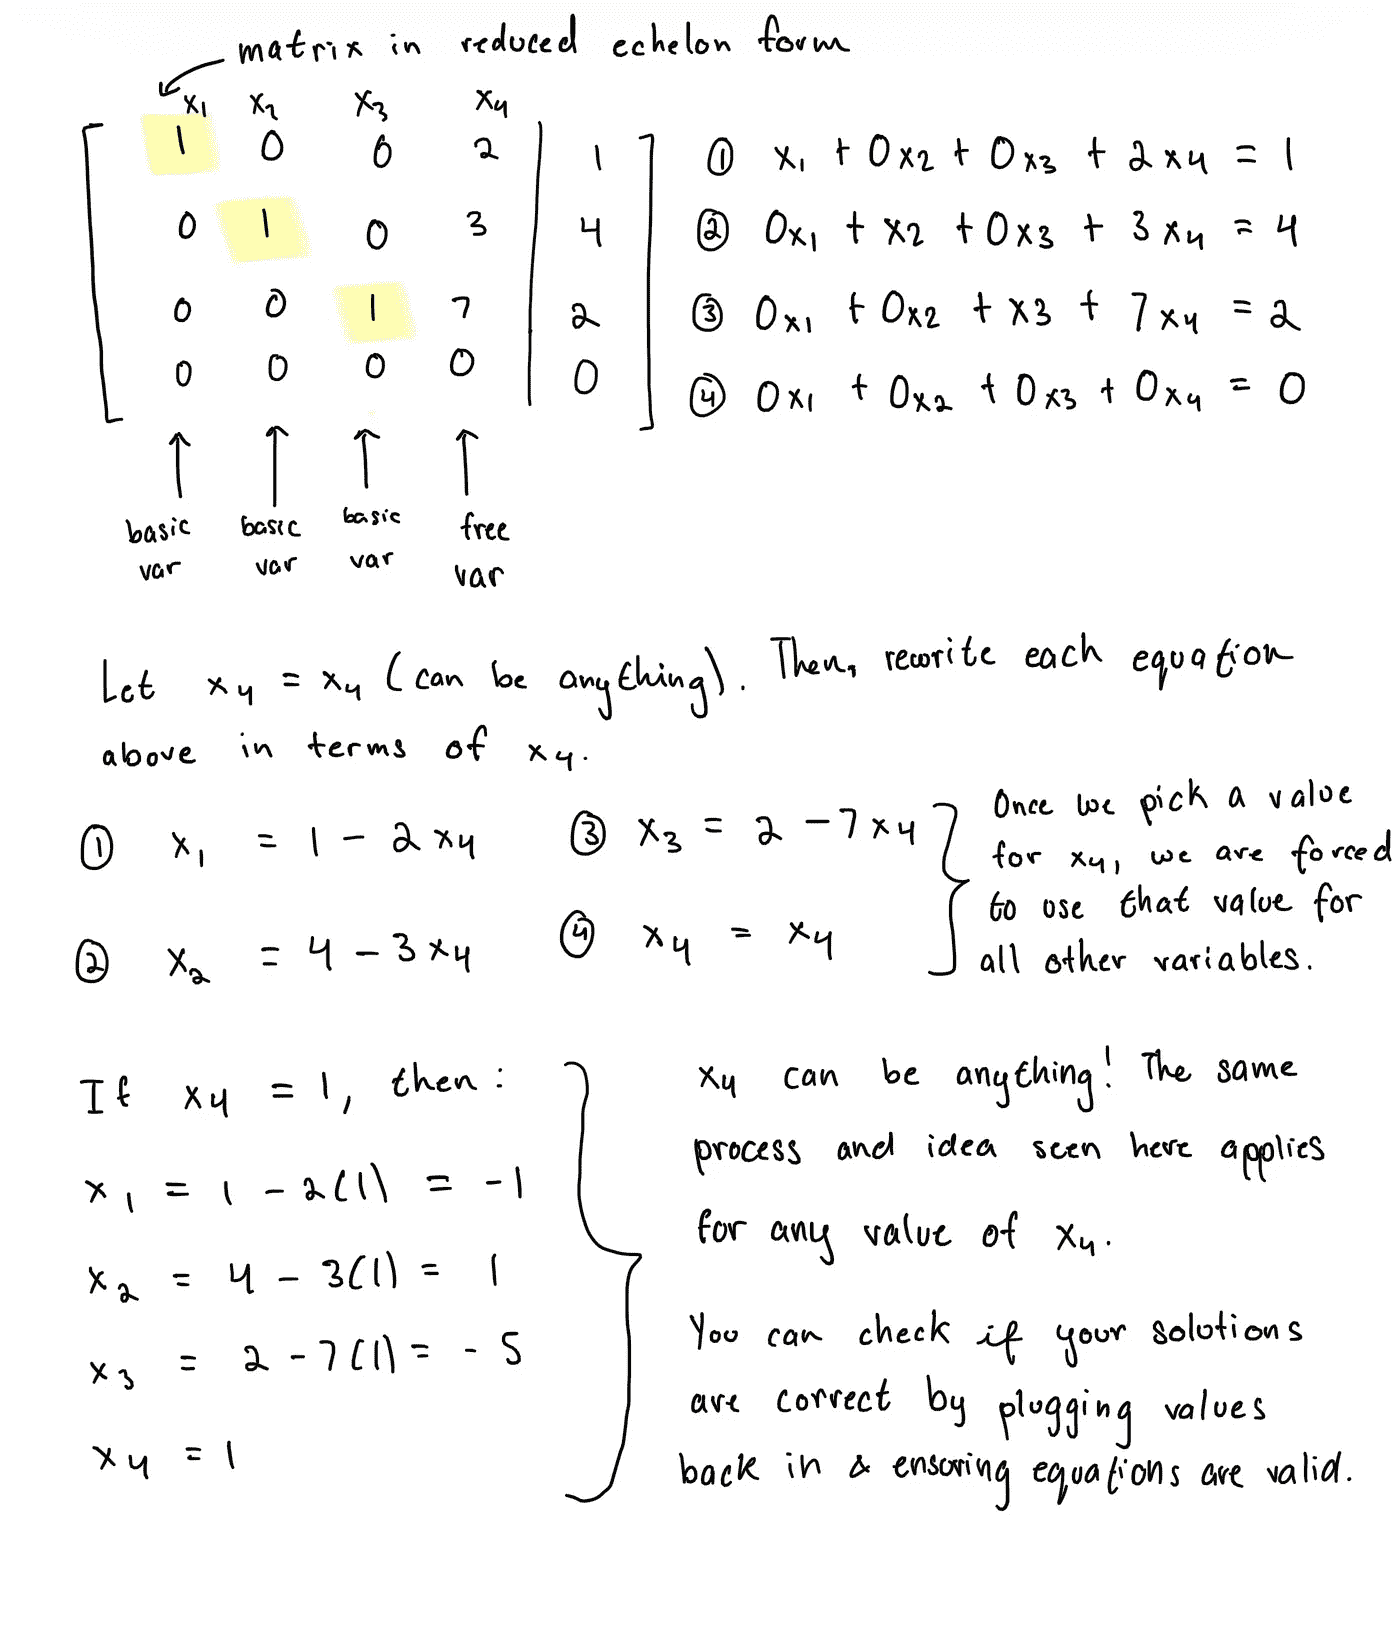 matrix in reduced echelon form
x₁ x₂ x₃ x₄
1 0 0 2 | 1
0 1 0 3 | 4
0 0 1 7 | 2
0 0 0 0 | 0
① x₁ + 0x₂ + 0x₃ + 2x₄ = 1
② 0x₁ + x₂ + 0x₃ + 3x₄ = 4
③ 0x₁ + 0x₂ + x₃ + 7x₄ = 2
④ 0x₁ + 0x₂ + 0x₃ + 0x₄ = 0
basic var
basic var
basic var
free var
Let x₄ = x₄ (can be anything). Then, rewrite each equation
above in terms of x₄.
① x₁ = 1 - 2x₄
② x₂ = 4 - 3x₄
③ x₃ = 2 - 7x₄
④ x₄ = x₄
Once we pick a value
for x₄, we are forced
to use that value for
all other variables.
If x₄ = 1, then:
x₁ = 1 - 2(1) = -1
x₂ = 4 - 3(1) = 1
x₃ = 2 - 7(1) = -5
x₄ = 1
x₄ can be anything! The same
process and idea seen here applies
for any value of x₄.
You can check if your solutions
are correct by plugging values
back in & ensuring equations are valid.